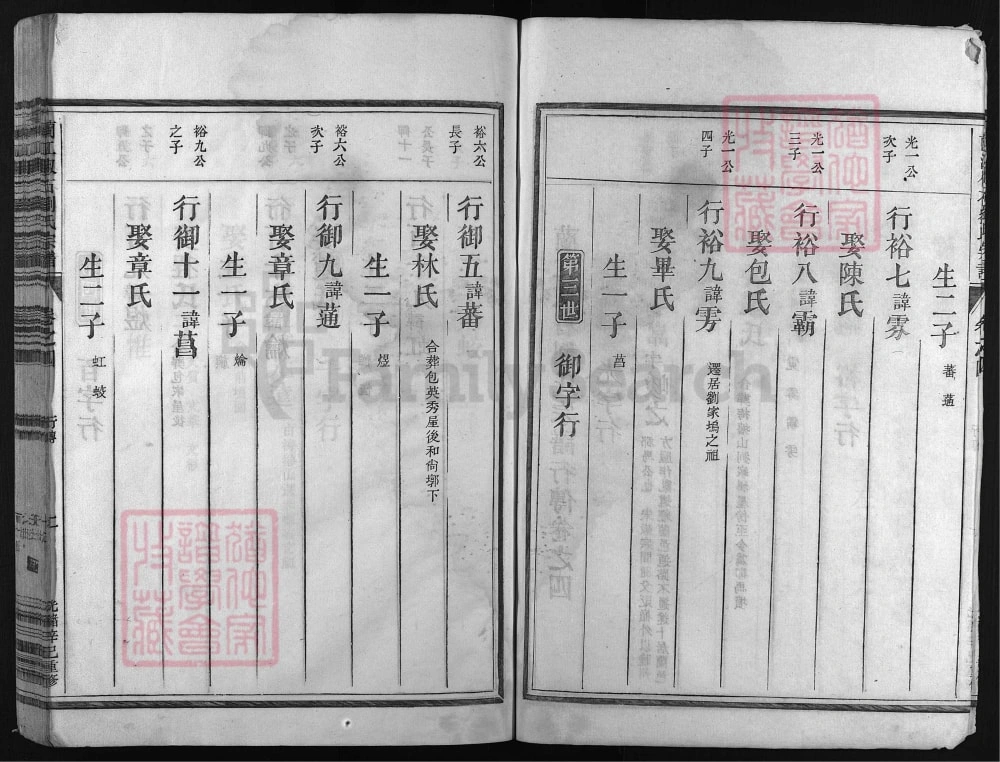 生二子 蕃 蓪
光一公次子
行裕七諱雾
娶陳氏
光一公三子
行裕八諱霸
娶包氏
光一公四子
行裕九諱雱 遷居劉家塢之祖
娶畢氏
生一子 菖
第三世 御字行
裕六公長子
行御五諱蕃
娶林氏 合葬包英秀屋後和尙塝下
生一子 煜
裕六公次子
行御九諱蓪
娶章氏
生一子 爚
裕九公之子
行御十一諱菖
娶章氏
生二子 虹 蛟
行傳
七
光緒辛巳重修
FamilySearch